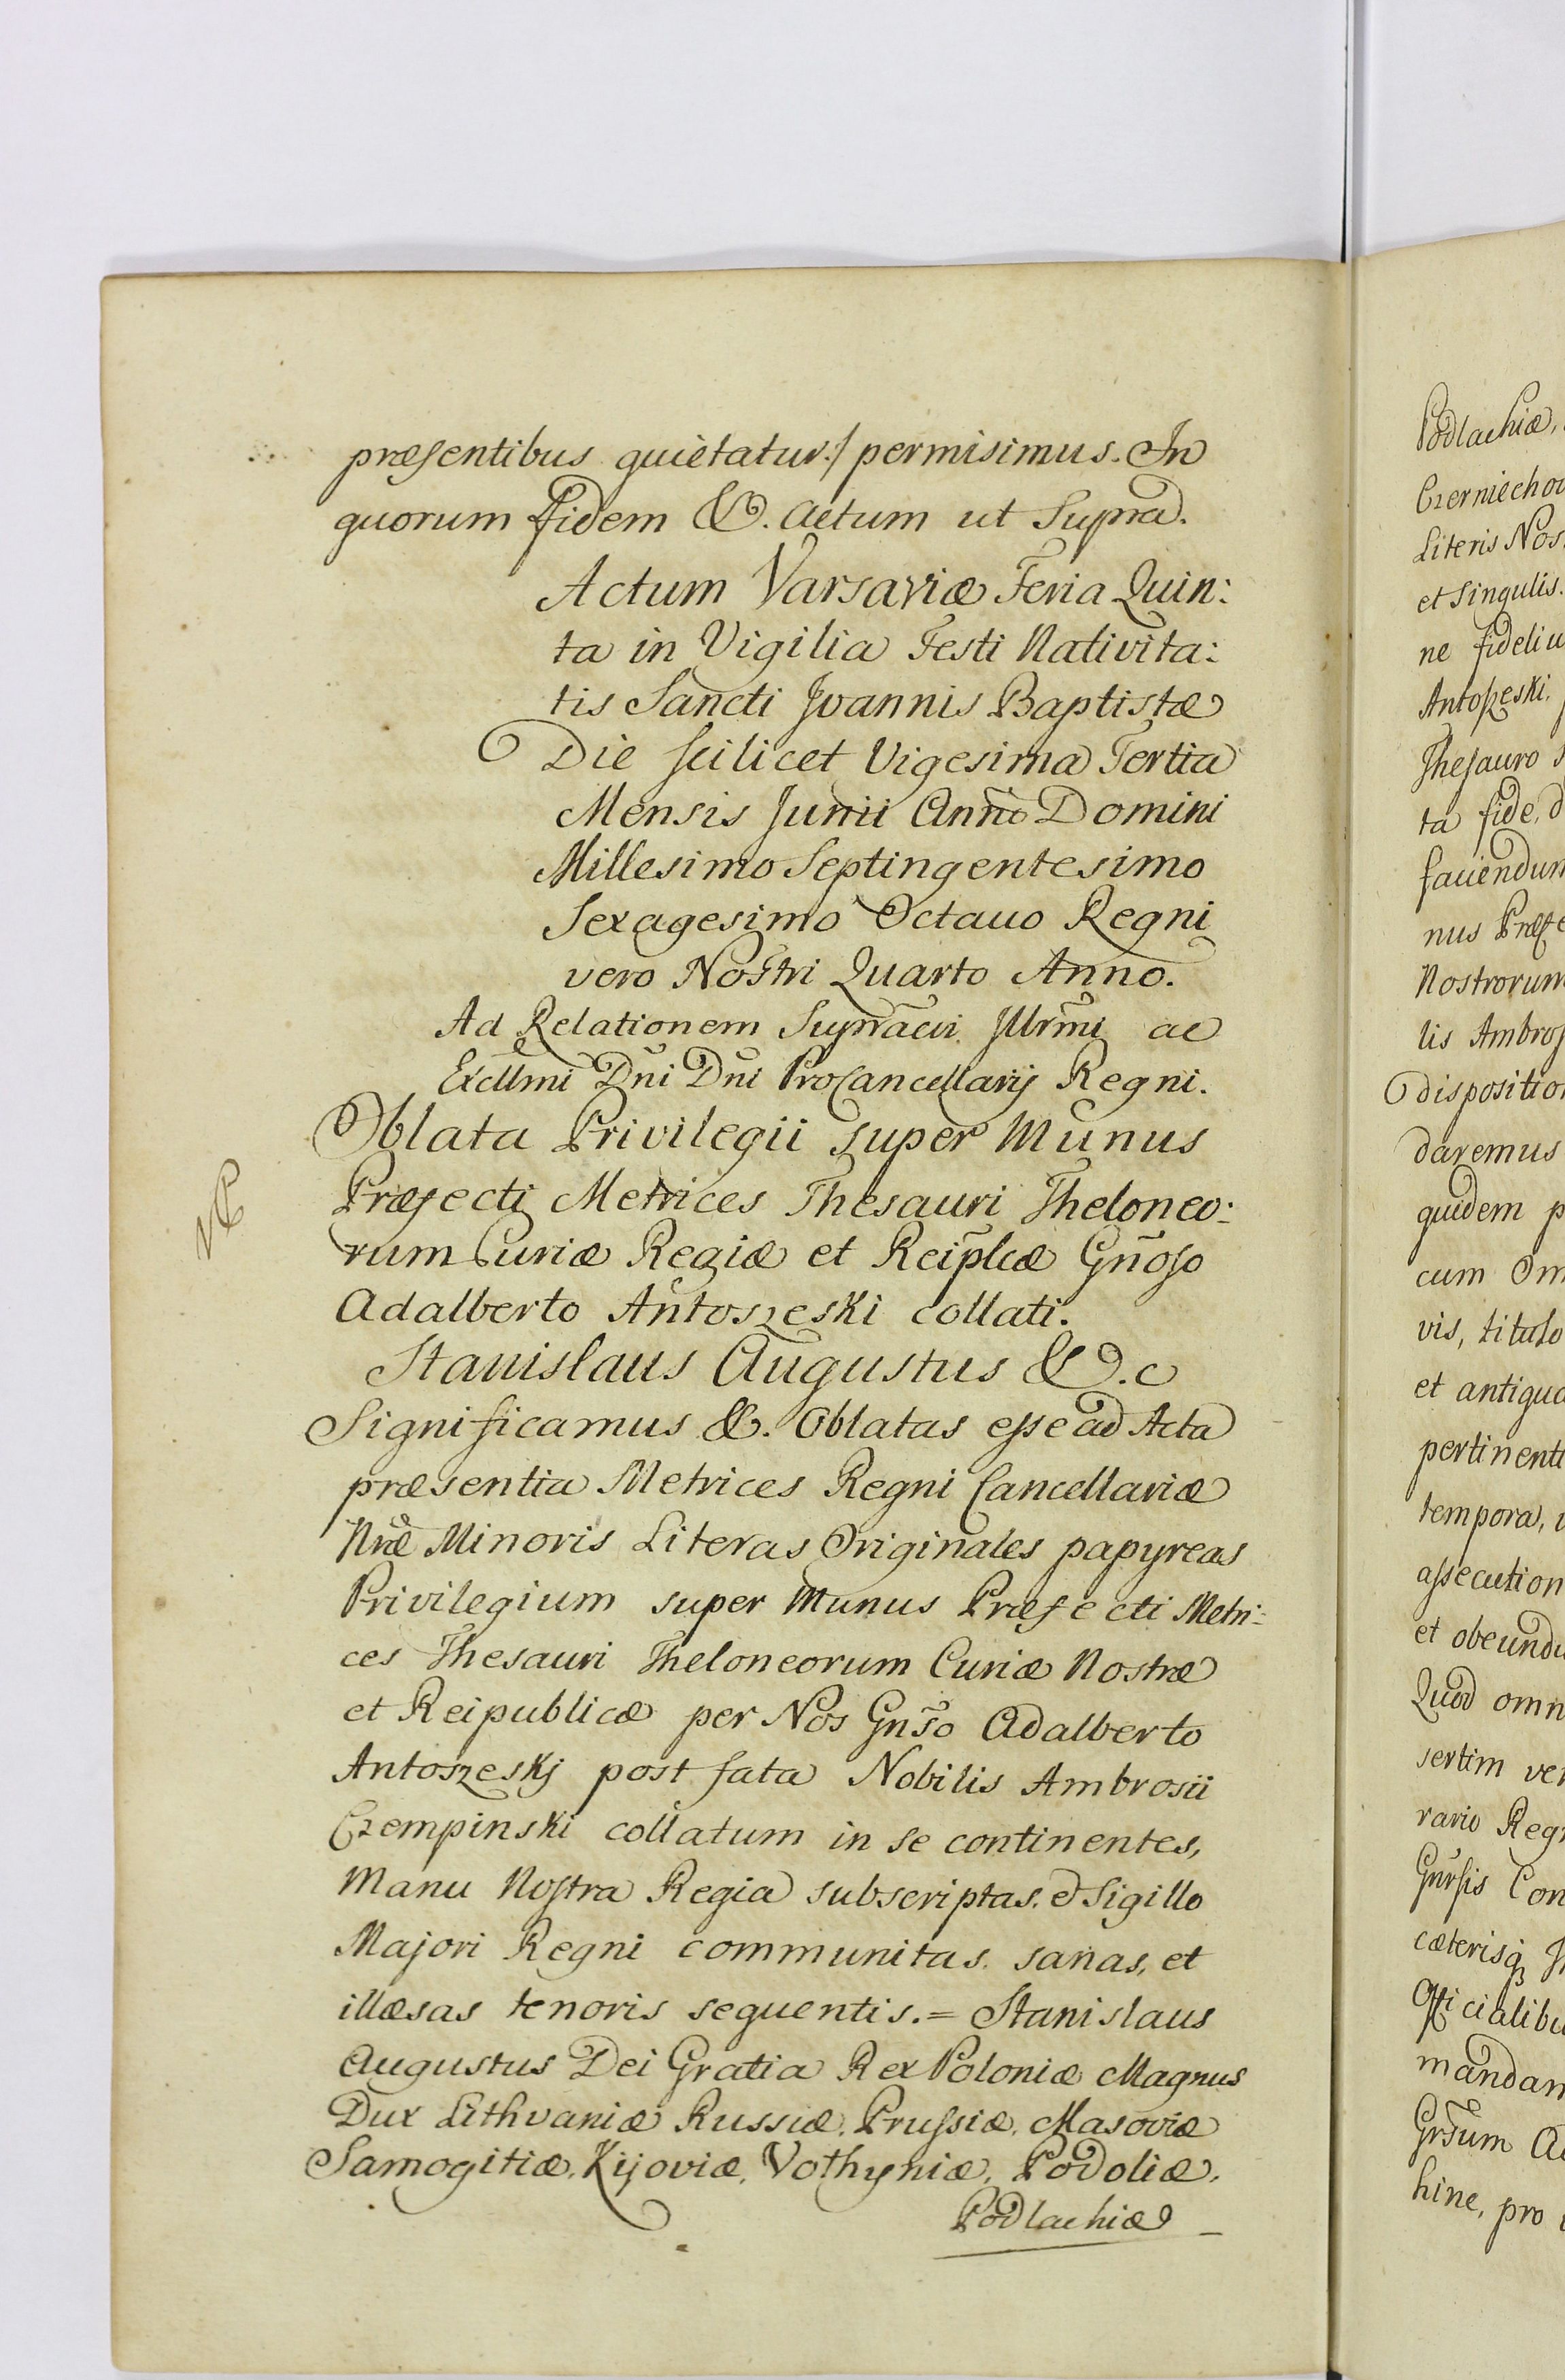 præsentibus quietatur:/ permisimus. In
quorum fidem &. Actum ut Supra.
Actum Varsaviæ Feria Quin:
ta in Vigilia Festi Nativita:
tis Sancti Joannis Baptistæ
Die scilicet Vigesima Tertia
Mensis Junii Anno Domini
Millesimo Septingentesimo
Sexagesimo Octavo Regni
vero Nostri Quarto Anno.
Ad Relationem Supracri Illrmi ac
Excllmi Dni Dni ProCancellarij Regni.
Oblata Privilegii super Munus
Præfecti Metrices Thesauri Theloneo:
rum Curiæ Regiæ et Reiplcæ Gnoso
Adalberto Antoszeski collati.
Stanislaus Augustus &.c
Significamus &. Oblatas esse ad Acta
præsentia Metrices Regni Cancellariæ
Nræ Minoris Literas Originales papyreas
Privilegium super Munus Præfecti Metri:
ces Thesauri Theloneorum Curiæ Nostræ
et Reipublicæ per Nos Gnso Adalberto
Antoszeskj post fata Nobilis Ambrosii
Czempinski collatum in se continentes,
Manu Nostra Regia subscriptas, et Sigillo
Majori Regni communitas. sanas, et
illæsas tenoris sequentis.= Stanislaus
Augustus Dei Gratia Rex Poloniæ Magnus
Dux Lithvaniæ Russiæ, Prussiæ, Masoviæ
Samogitiæ, Kijoviæ, Volhyniæ, Podoliæ,
Podlachiæ
Podlachiæ,
Czerniechov
Literis Nos
et Singulis.
ne fideliu
Antoszeski.
Thesauro s
ta fide, d
faciendum
nus Præfe
Nostrorum
lis Ambros
dispositio
daremus
quidem p
cum Om
vis, titulo
et antiqua
pertinenti
tempora,
assecution
et obeundi
Quod omn
sertim ve
rario Reg
Gnrsis Con
cæterisq
Officialibu
mandam
Grsum A
hinc, pro